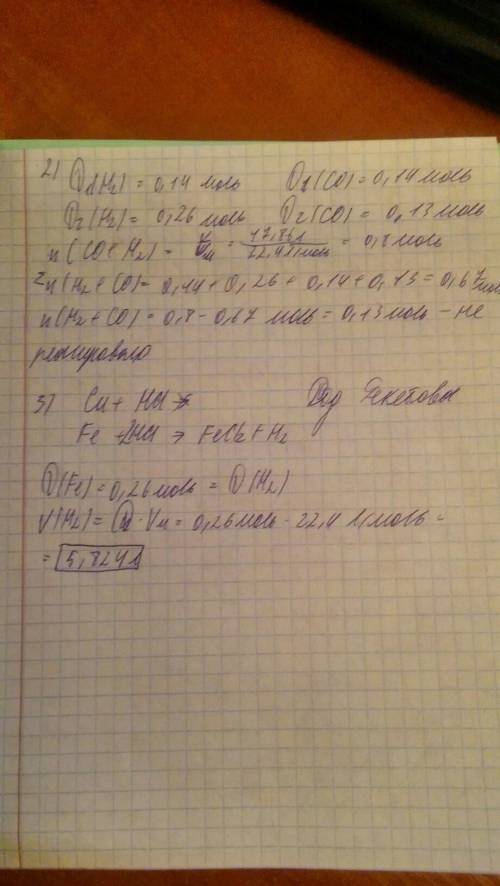 2) ν₁(H₂) = 0,14 моль ν₁(CO) = 0,14 моль
ν₂(H₂) = 0,26 моль ν₂(CO) = 0,13 моль
n(CO+H₂) = V/Vм = 17,86л/22,4л/моль = 0,8 моль
n(H₂+CO) = 0,14+0,26+0,14+0,13 = 0,67 моль
n(H₂+CO) = 0,8 - 0,67 моль = 0,13 моль - не
реагировало
3) Cu + HCl ↛ Бекетова
Fe + 2HCl → FeCl₂ + H₂
ν(Fe) = 0,26 моль = ν(H₂)
V(H₂) = ν · Vм = 0,26 моль · 22,4 л/моль =
= 5,824л